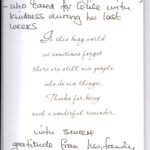 who cared for       with
kindness during his last
weeks
In this busy world
we sometimes forget
there are still nice people
who do nice things.
Thanks for being
such a wonderful reminder.
with sincere
gratitude from his family